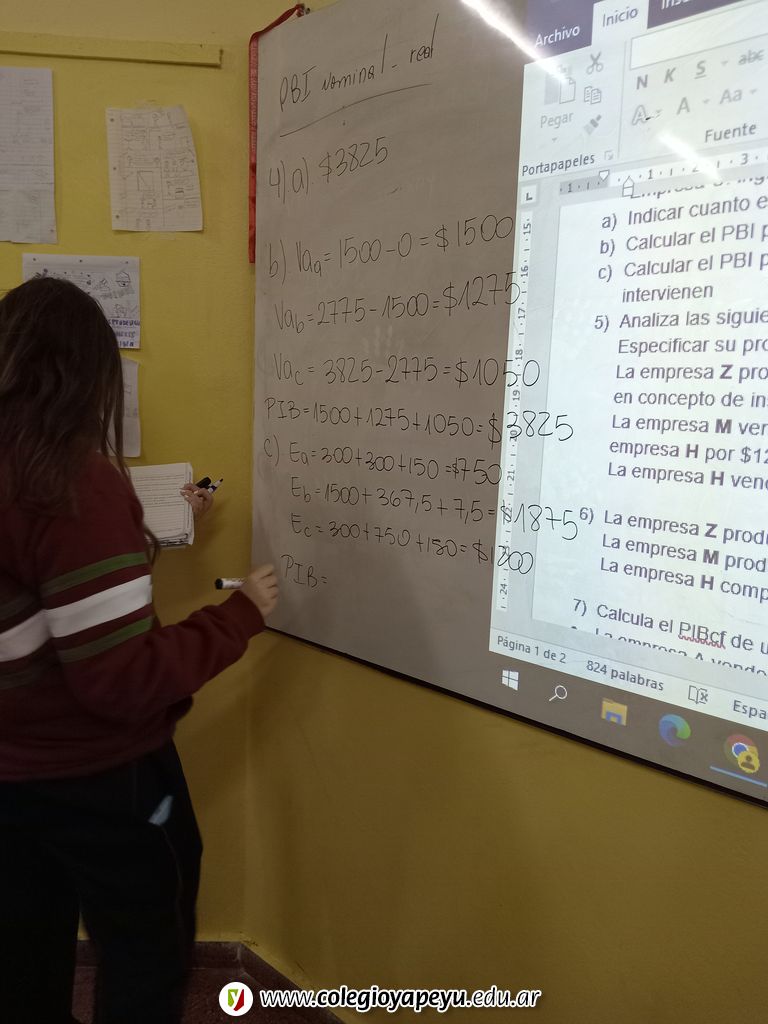 PBI Nominal - real
4) a) $3825
b) Vaa = 1500 - 0 = $1500
Vab = 2775 - 1500 = $1275
Vac = 3825 - 2775 = $1050
PIB = 1500 + 1275 + 1050 = $3825
c) Ea = 300 + 300 + 150 = $750
Eb = 1500 + 367,5 + 7,5 = $1875
Ec = 300 + 750 + 150 = $1200
PIB =
Archivo
Inicio
Pegar
N K S abc
A A Aa
Portapapeles
Fuente
a) Indicar cuanto e
b) Calcular el PBI p
c) Calcular el PBI p
intervienen
5) Analiza las siguie
Especificar su pro
La empresa Z pro
en concepto de in
La empresa M ver
empresa H por $12
La empresa H vend
6) La empresa Z produ
La empresa M prod
La empresa H comp
7) Calcula el PIBcf de u
La empresa A vende
Página 1 de 2
824 palabras
Espa
www.colegioyapeyu.edu.ar